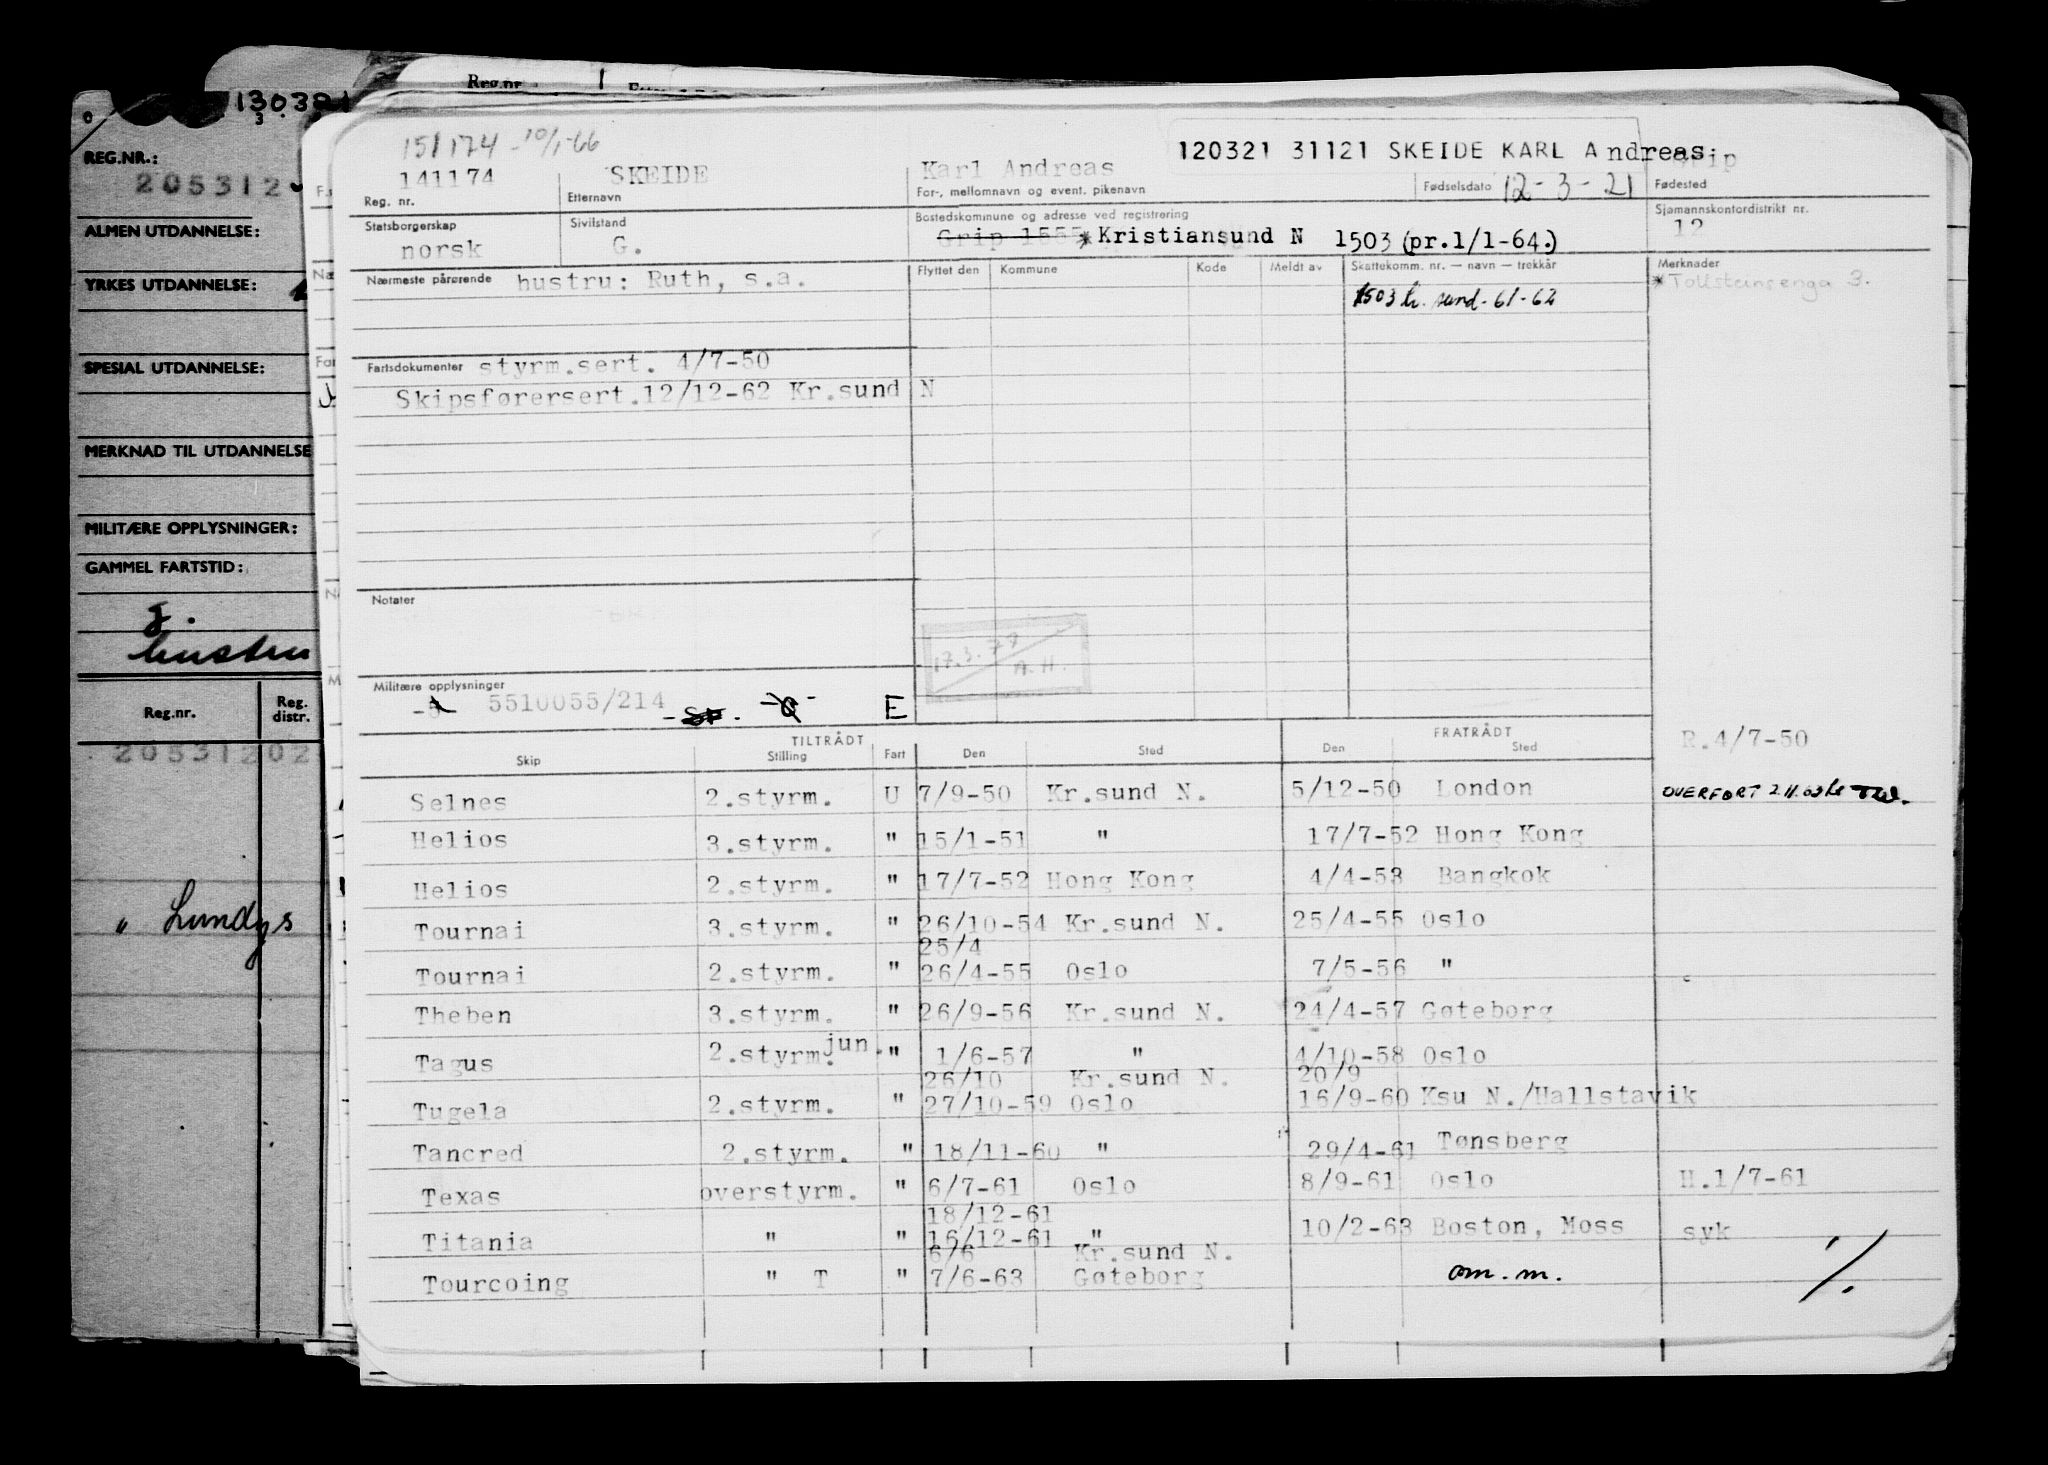 Reg.nr.
130321
REG.NR.:
205312
ALMEN UTDANNELSE:
YRKES UTDANNELSE:
SPESIAL UTDANNELSE:
MERKNAD TIL UTDANNELSE
MILITÆRE OPPLYSNINGER:
GAMMEL FARTSTID:
g.
hustru
Reg.nr. Reg. distr.
205312 02
" Lundys
151174 - 10/1-66
120321 31121 SKEIDE KARL Andreas
141174 SKEIDE Karl Andreas 12-3-21
Reg. nr. Etternavn For-, mellomnavn og event. pikenavn Fødselsdato Fødested
Statsborgerskap Sivilstand Bostedskommune og adresse ved registrering Sjømannskontordistrikt nr.
norsk G. Grip 1555 * Kristiansund N 1503 (pr.1/1-64.) 12
Nærmeste pårørende hustru: Ruth, s.a. Flyttet den Kommune Kode Meldt av Skattekomm. nr. — navn — trekkår Merknader
1503 kr. sund - 61-62 * Tollsteinsenga 3.
Fartsdokumenter styrm.sert. 4/7-50
Skipsførersert.12/12-62 Kr.sund N
Notater
17.3.79 A.H.
Militære opplysninger
-5- 5510055/214 E
TILTRÅDT FRATRÅDT
Skip Stilling Fart Den Sted Den Sted R.4/7-50
Selnes 2.styrm. U 7/9-50 Kr.sund N. 5/12-50 London OVERFØRT 2.11.63
Helios 3.styrm. " 15/1-51 " 17/7-52 Hong Kong
Helios 2.styrm. " 17/7-52 Hong Kong 4/4-53 Bangkok
Tournai 3.styrm. " 26/10-54 Kr.sund N. 25/4-55 Oslo
25/4
Tournai 2.styrm. " 26/4-55 Oslo 7/5-56 "
Theben 3.styrm. " 26/9-56 Kr.sund N. 24/4-57 Gøteborg
Tagus 2.styrm. jun. " 1/6-57 " 4/10-58 Oslo
26/10 Kr.sund N. 20/9
Tugela 2.styrm. " 27/10-59 Oslo 16/9-60 Ksu N./Hallstavik
Tancred 2.styrm. " 18/11-60 " 29/4-61 Tønsberg
Texas overstyrm. " 6/7-61 Oslo 8/9-61 Oslo H.1/7-61
18/12-61
Titania " " 16/12-61 " 10/2-63 Boston, Moss syk
6/6 Kr.sund N.
Tourcoing " T " 7/6-63 Gøteborg om.m. ./.